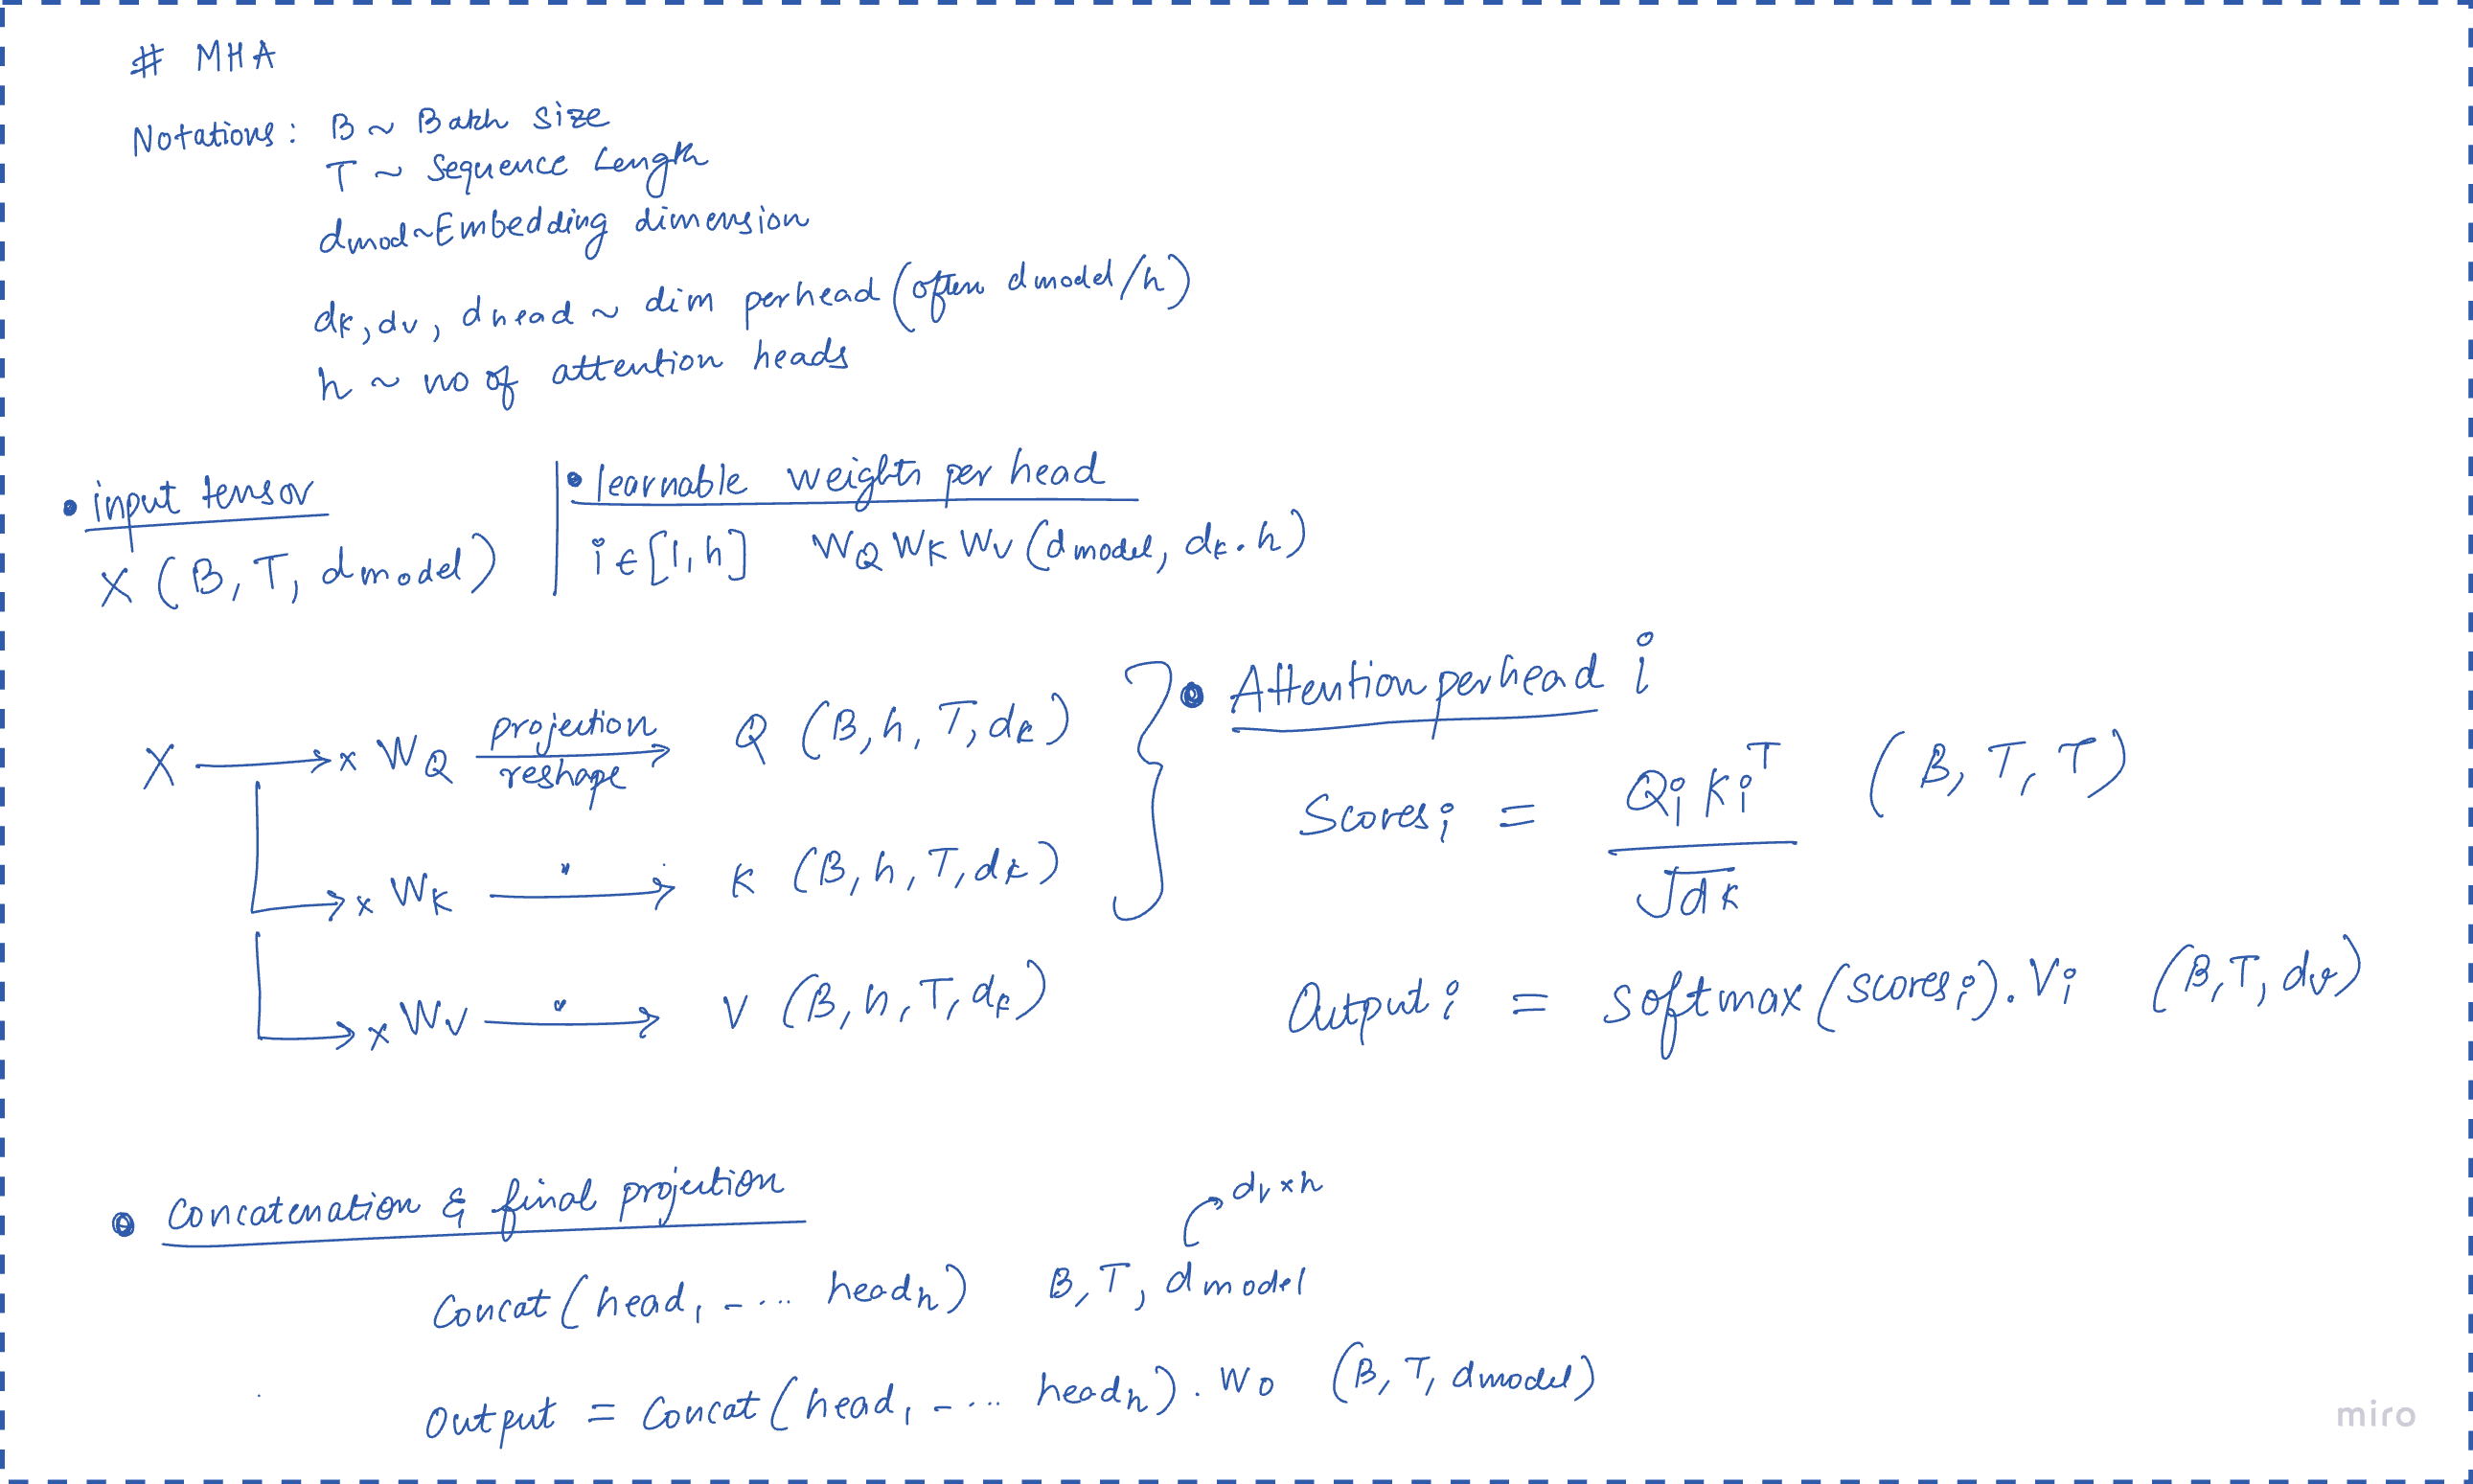 # MHA
Notations: B ~ Batch size
T ~ Sequence Length
dmod ~ Embedding dimension
dk, dv, dhead ~ dim perhead (often dmodel/h)
h ~ no of attention heads
• input tensor
X (B, T, dmodel)
• learnable weights per head
i ∈ [1, h] WQ WK WV (dmodel, dk . h)
X → x WQ projection reshape → Q (B, h, T, dk)
→ x WK " → K (B, h, T, dk)
→ x WV " → V (B, h, T, dk)
• Attention perhead i
Scores i = Qi Ki^T / √dk (B, T, T)
Output i = softmax (scores i) . Vi (B, T, dv)
• Concatenation & final projection
dv x h
Concat (head1 - ... headh) B, T, dmodel
Output = Concat (head1 - ... headh) . WO (B, T, dmodel)
miro